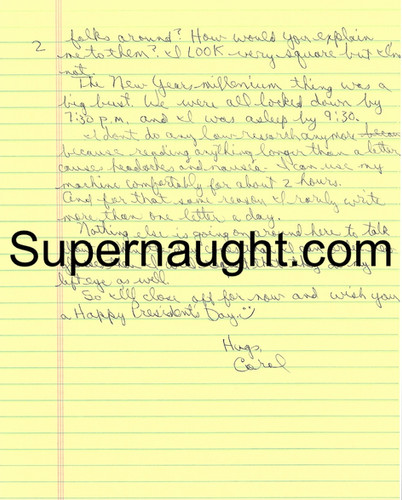 2
folks around? How would you explain
me to them? I LOOK very square but I'm
not.
The New Years-millenium thing was a
big bust. We were all locked down by
7:30 p.m. and I was asleep by 9:30.
I don't do any law research anymore
because reading anything longer than a letter
cause headaches and nausia. I can use my
machine comfortably for about 2 hours.
And for that same reason I rarely write
more than one letter a day.
Nothing else is going on around here to talk
Supernaught.com
left eye as well.
So I'll close off for now and wish you
a Happy President's Day
Hugs,
Carol